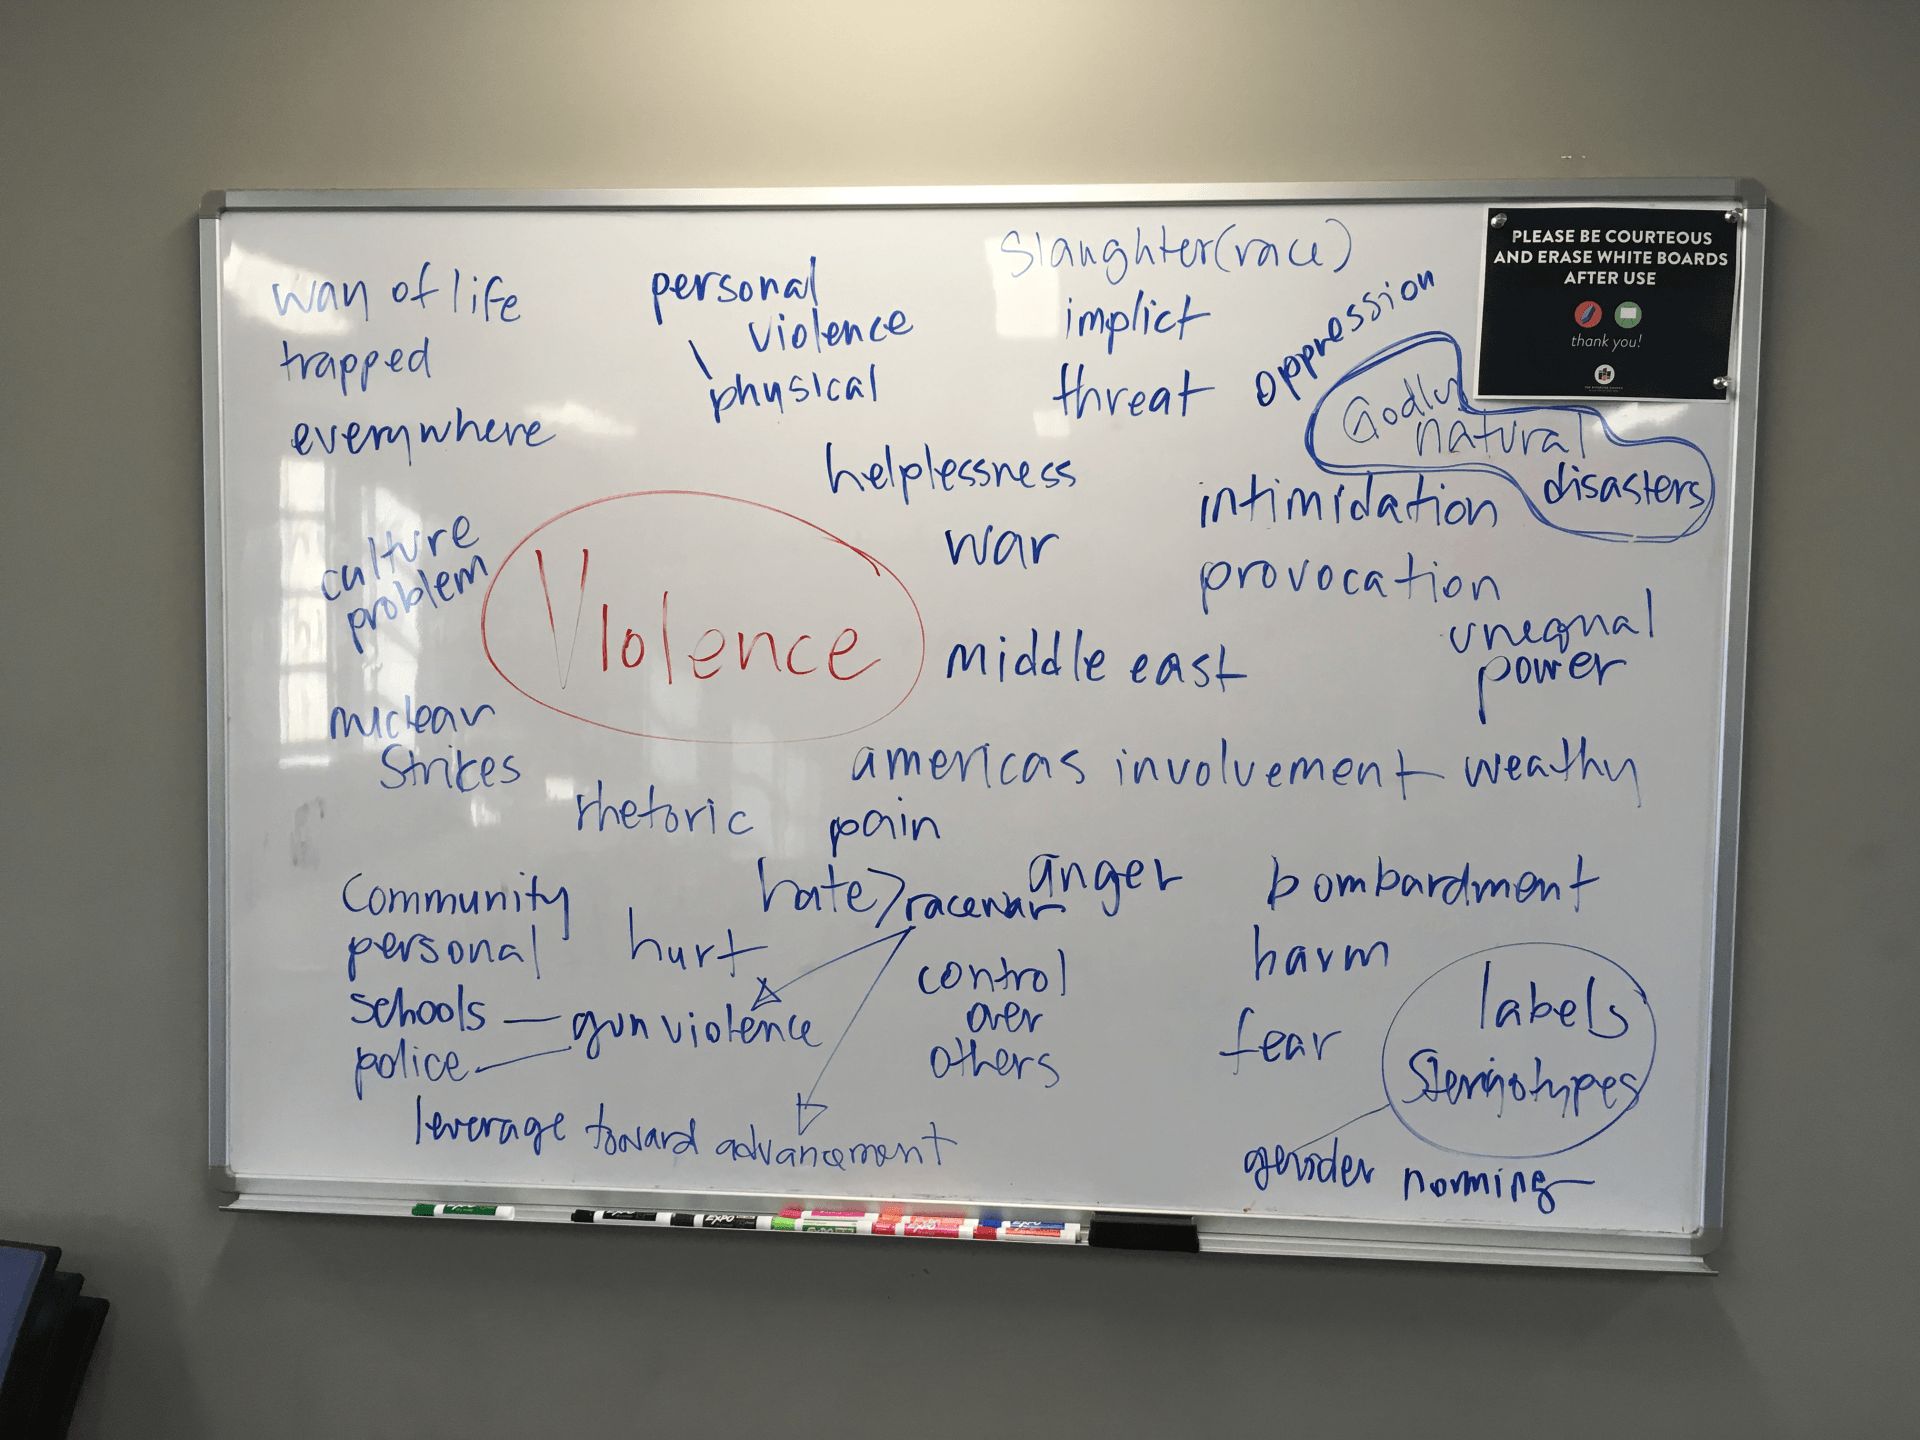 PLEASE BE COURTEOUS
AND ERASE WHITE BOARDS
AFTER USE
thank you!
slaughter(race)
way of life
personal
violence
implict
oppression
trapped
physical
threat
Godly
natural
disasters
everywhere
helplessness
intimidation
culture
problem
war
provocation
Violence
unequal
power
middle east
nuclear
strikes
americas involvement
weathy
rhetoric
pain
hate>racewar
anger
bombardment
community
personal
hurt
harm
schools — gun violence
police
control
over
others
fear
labels
leverage toward advancement
gender norming
EXPO